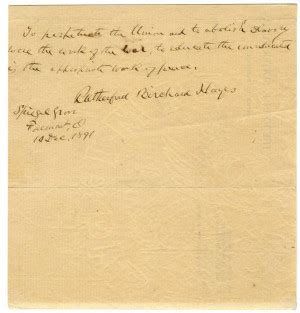 To perpetuate the Union and to abolish Slavery
were the work of the War, to educate the uneducated
is the appropriate work of peace.
Rutherford Birchard Hayes
Spiegel Grove
Fremont, O
10 Dec. 1891